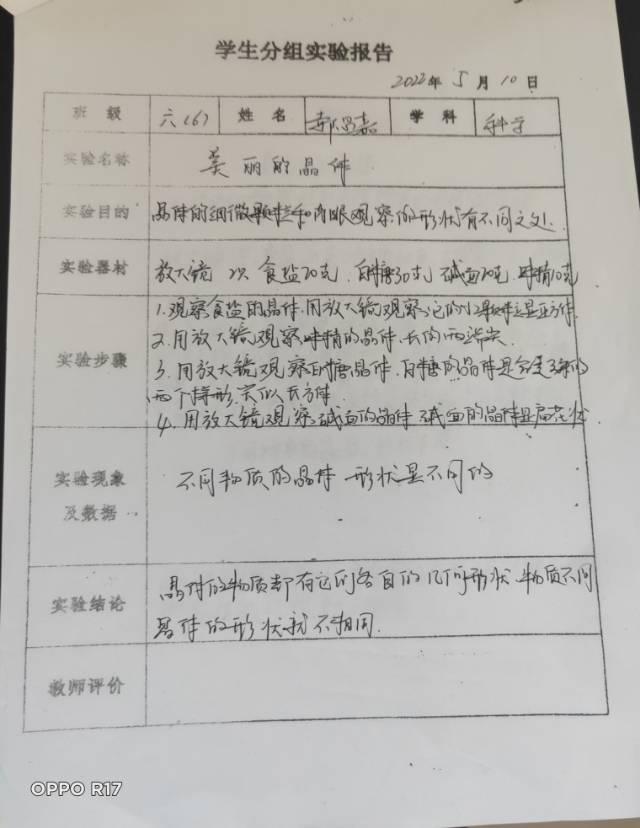 学生分组实验报告
2022年 5月10日
班级 六(6) 姓名 嘉 学科 科学
实验名称 美丽的晶体
实验目的 晶体的细微颗粒和肉眼观察的形状有不同之处.
实验器材 放大镜 食盐20克. 白糖30克. 碱面20克. 味精10克
1.观察食盐的晶体.用放大镜观察,它的小颗粒是正方体.
2.用放大镜观察味精的晶体.长的两头尖
实验步骤 3.用放大镜观察白糖晶体.白糖的晶体是
两个梯形.类似长方体
4.用放大镜观察碱面的晶体 碱面的晶体呈扁花状
实验现象 不同物质的晶体形状是不同的
及数据
晶体的物质都有它们各自的几何形状.物质不同
实验结论
晶体的形状就不相同.
教师评价
OPPO R17